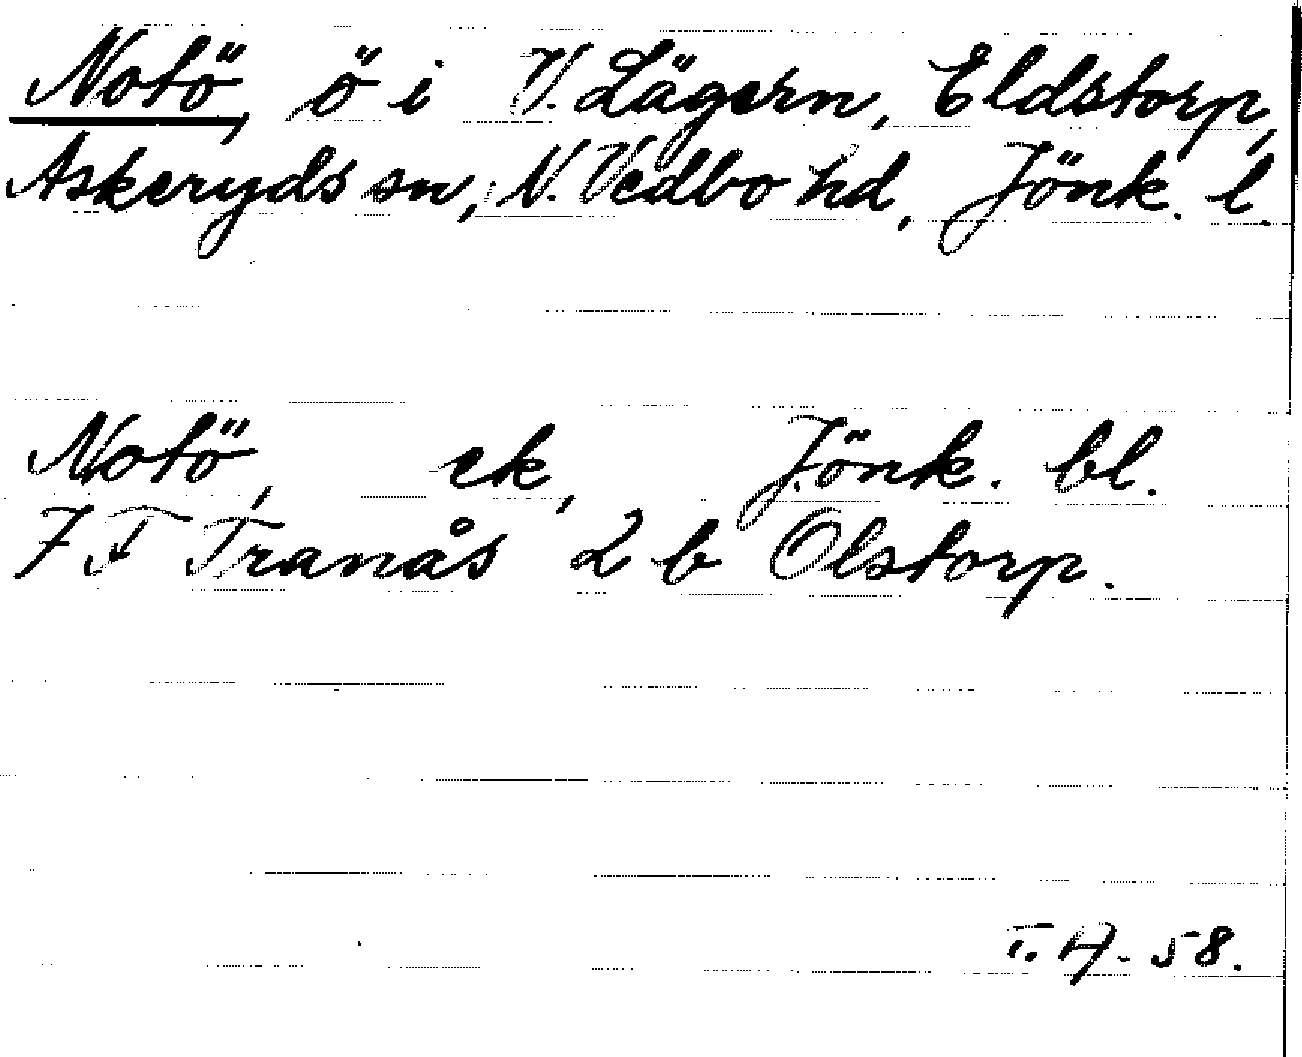 Notö, ö i V. Lägern, Eldstorp,
Askeryds sn, N. Vedbo hd, Jönk. l.
Notö, ek, Jönk. bl.
7 F Tranås 2 b Olstorp.
T. H - 58.